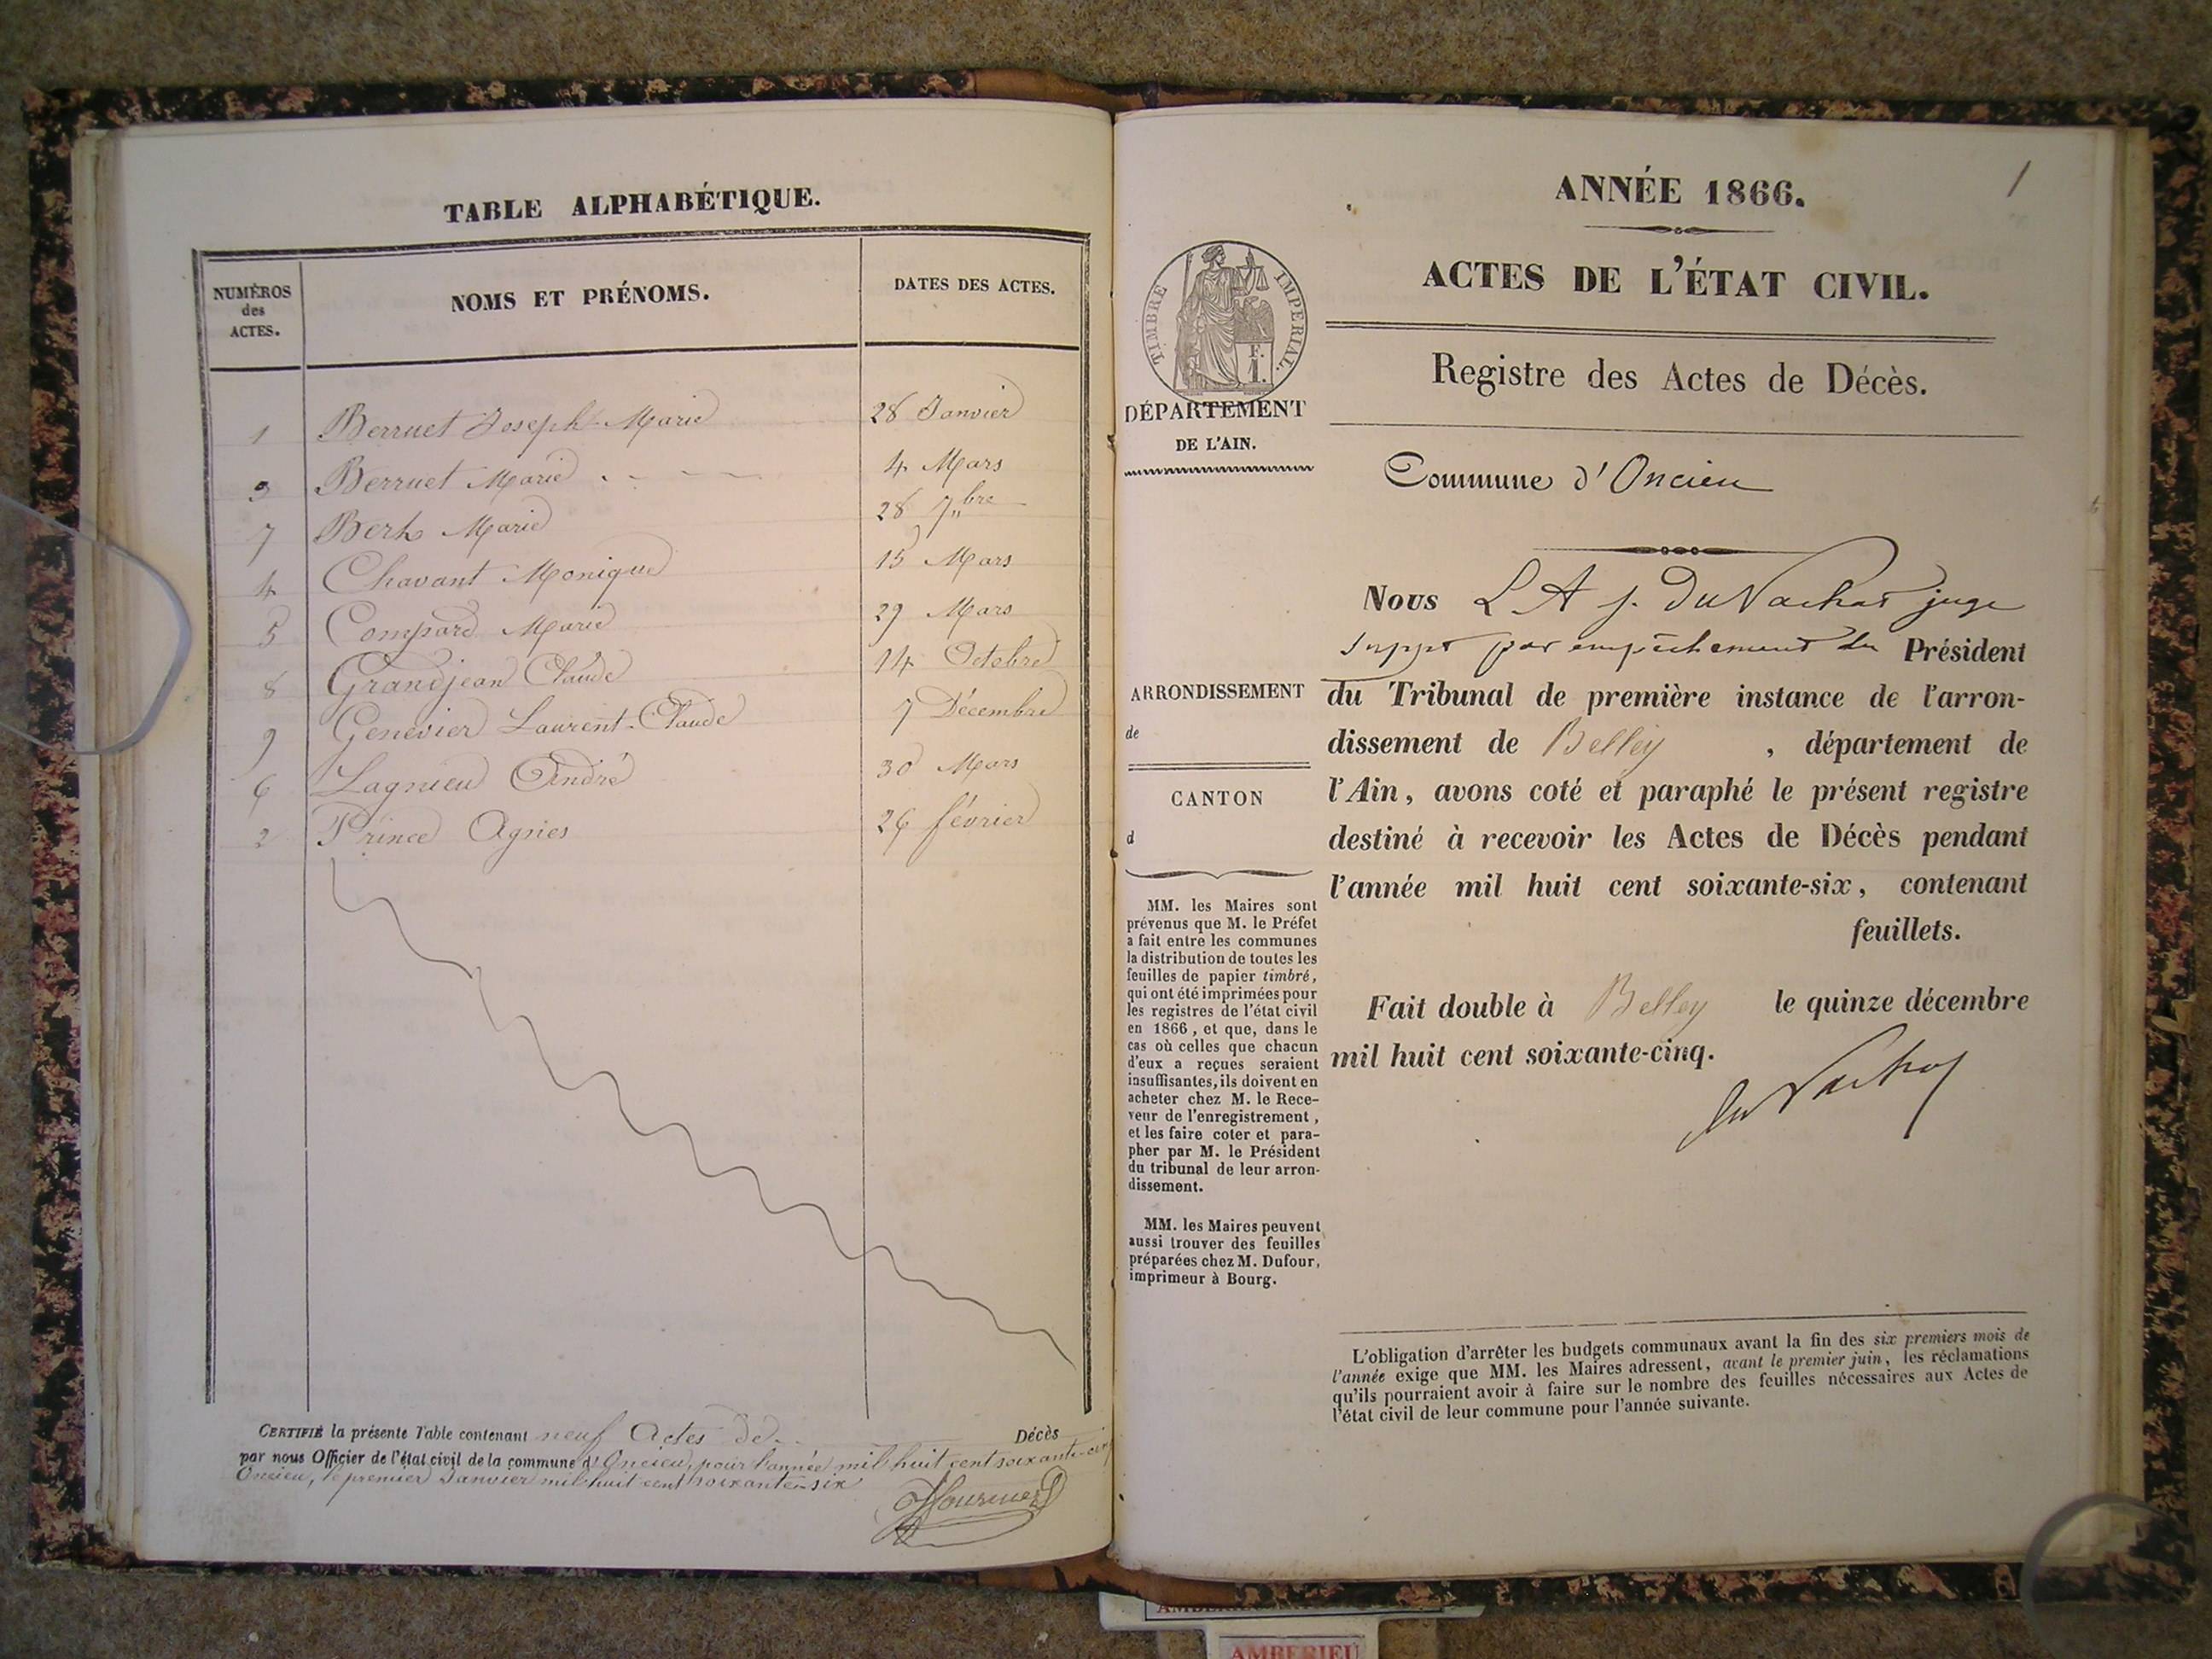 TABLE ALPHABÉTIQUE.
NUMÉROS
des
ACTES.
NOMS ET PRÉNOMS.
DATES DES ACTES.
1 Berruet Joseph-Marie 28 Janvier
3 Berruet Marie 4 Mars
7 Marie 28 7bre
4 Chavant Monique 15 Mars
5 Compard Marie 29 Mars
8 Grandjean Claude 14 Octobre
9 Genevier Laurent-Claude 7 Décembre
6 Lagnieu André 30 Mars
2 Prince Agnes 26 février
CERTIFIÉ la présente Table contenant neuf Actes de Décès
par nous Officier de l'état civil de la commune d'Oncieu, pour l'année mil huit cent soixante-cinq
Oncieu, le premier Janvier mil huit cent soixante-six
1
ANNÉE 1866.
ACTES DE L'ÉTAT CIVIL.
Registre des Actes de Décès.
TIMBRE IMPÉRIAL.
F.
1.
DÉPARTEMENT
DE L'AIN.
Commune d'Oncieu
Nous L A J. DuVachat juge
suppt par empêchement du Président
du Tribunal de première instance de l'arron-
dissement de Belley , département de
l'Ain, avons coté et paraphé le présent registre
destiné à recevoir les Actes de Décès pendant
l'année mil huit cent soixante-six, contenant
feuillets.
Fait double à Belley le quinze décembre
mil huit cent soixante-cinq.
du Vachat
ARRONDISSEMENT
de
CANTON
d
MM. les Maires sont
prévenus que M. le Préfet
a fait entre les communes
la distribution de toutes les
feuilles de papier timbré,
qui ont été imprimées pour
les registres de l'état civil
en 1866, et que, dans le
cas où celles que chacun
d'eux a reçues seraient
insuffisantes, ils doivent en
acheter chez M. le Rece-
veur de l'enregistrement,
et les faire coter et para-
pher par M. le Président
du tribunal de leur arron-
dissement.
MM. les Maires peuvent
aussi trouver des feuilles
préparées chez M. Dufour,
imprimeur à Bourg.
L'obligation d'arrêter les budgets communaux avant la fin des six premiers mois de
l'année exige que MM. les Maires adressent, avant le premier juin, les réclamations
qu'ils pourraient avoir à faire sur le nombre des feuilles nécessaires aux Actes de
l'état civil de leur commune pour l'année suivante.
AMBERIEU